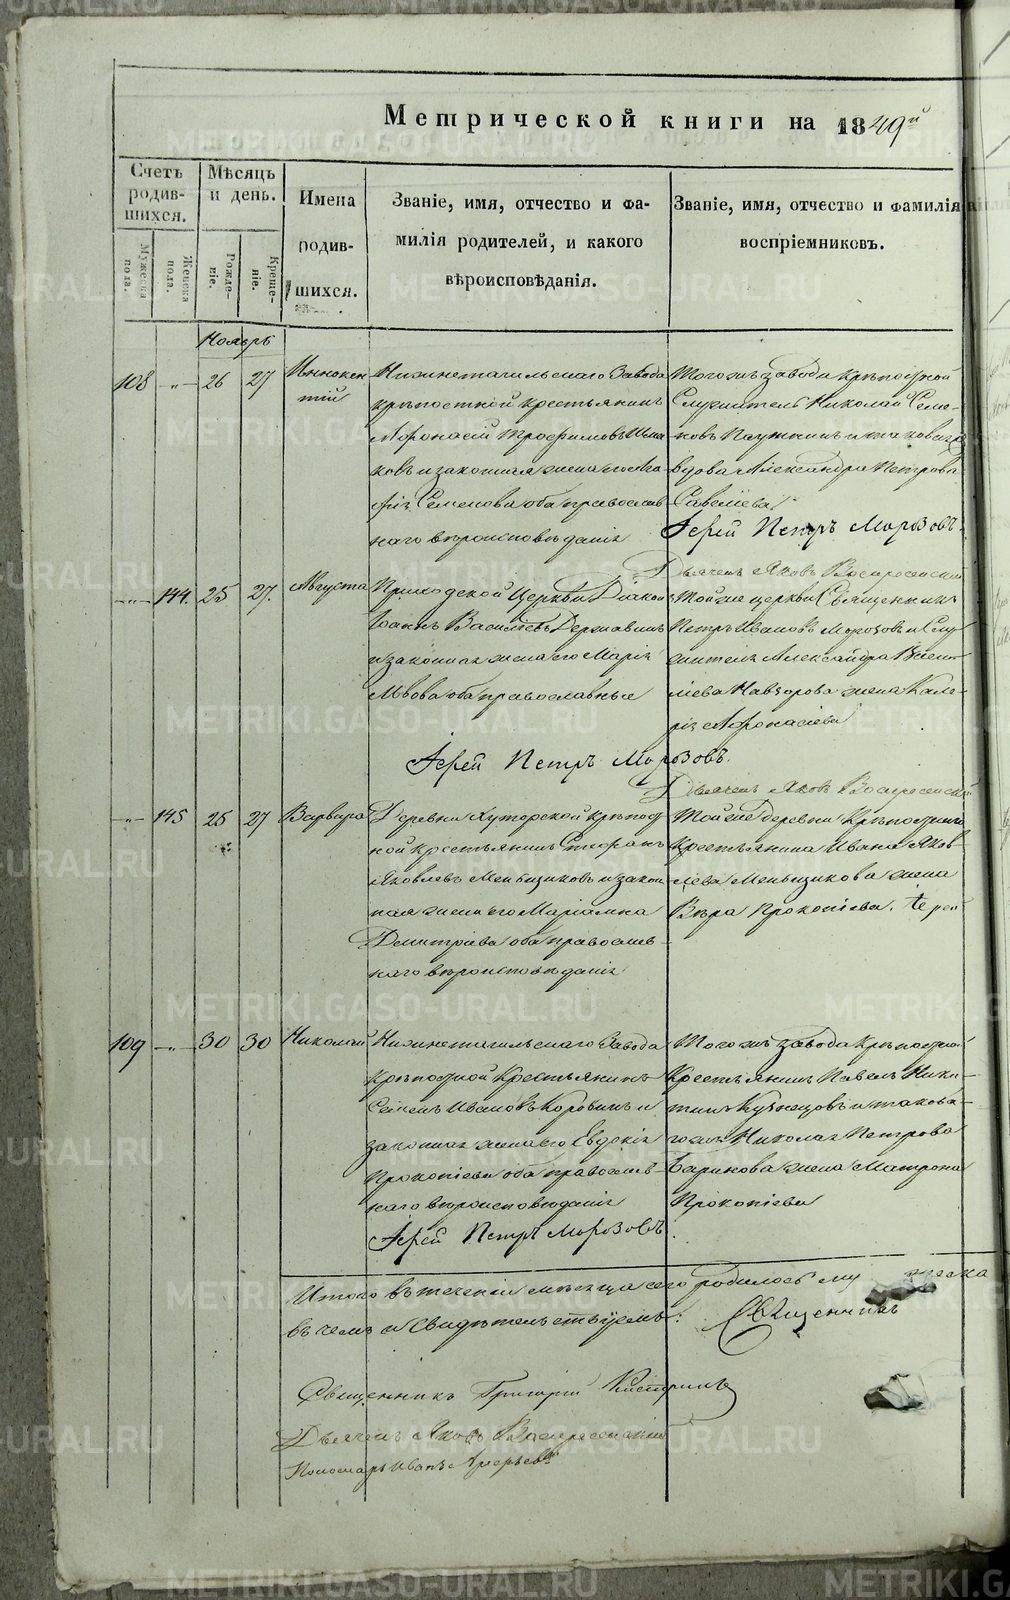 Метрической книги на 1849й
Счетъ родившихся.
Мужеска пола.
Женска пола.
Мѣсяцъ и день.
Рожденіе.
Крещеніе.
Имена родившихся.
Званіе, имя, отчество и фамилія родителей, и какого вѣроисповѣданія.
Званіе, имя, отчество и фамилія воспріемниковъ.
Ноябрь
108 26 27 Иннокен
тій
Нижнетагильскаго Завода
крѣпостной крестьянинъ
Афонасій Трофимовъ
ковъ и законная жена его Ага
фія Семенова оба православ
наго вѣроисповѣданія
Тогожъ завода крѣпостной
Служитель Николай Семе-
новъ и таковагожъ
вдова Александра Петрова
Савеліева
Іерей Петръ Морозовъ.
Дьячекъ Яковъ Воскресенскій
144. 25 27. Августа
Приходской Церкви Діакон
Іоаннъ Василіевъ Державинъ
и законная жена его Марія
Львова оба православные
Тойже церкви Священникъ
Петръ Ивановъ Морозовъ и Слу
жителя Александра
ліева жена Кале-
рія Афонасіева
Іерей Петръ Морозовъ.
Дьячекъ Яковъ Воскресенскій
145 25 27 Варвара
Деревни Хуторской крѣпост
ной крестьянинъ Стефанъ
Яковлевъ Меньщиковъ и закон
ная жена его Маріамна
Димитріева оба православ-
наго вѣроисповѣданія
Тойже деревни Крѣпостнаго
Крестьянина Ивана Яков-
лева Меньщикова жена
Вѣра Прокопіева. Іерей
109 30 30 Николай
Нижнетагильскаго Завода
Крѣпостной Крестьянинъ
Семенъ Ивановъ Коровинъ и
законная жена его Евдокія
Прокопіева оба православ-
наго вѣроисповѣданія
Тогожъ завода крѣпостной
Крестьянинъ Павелъ Ники-
тинъ Кузнецовъ и такова-
гожъ Николая Петрова
Баринова жена Матрона
Прокопіева
Іерей Петръ Морозовъ.
Итого въ теченіи мѣсяца сего родилось му женска
въ чемъ и свидѣтельствуемъ: Священникъ
Священникъ Григорій
Дьячекъ Яковъ Воскресенскій
Пономарь Иванъ
METRIKI.GASO-URAL.RU